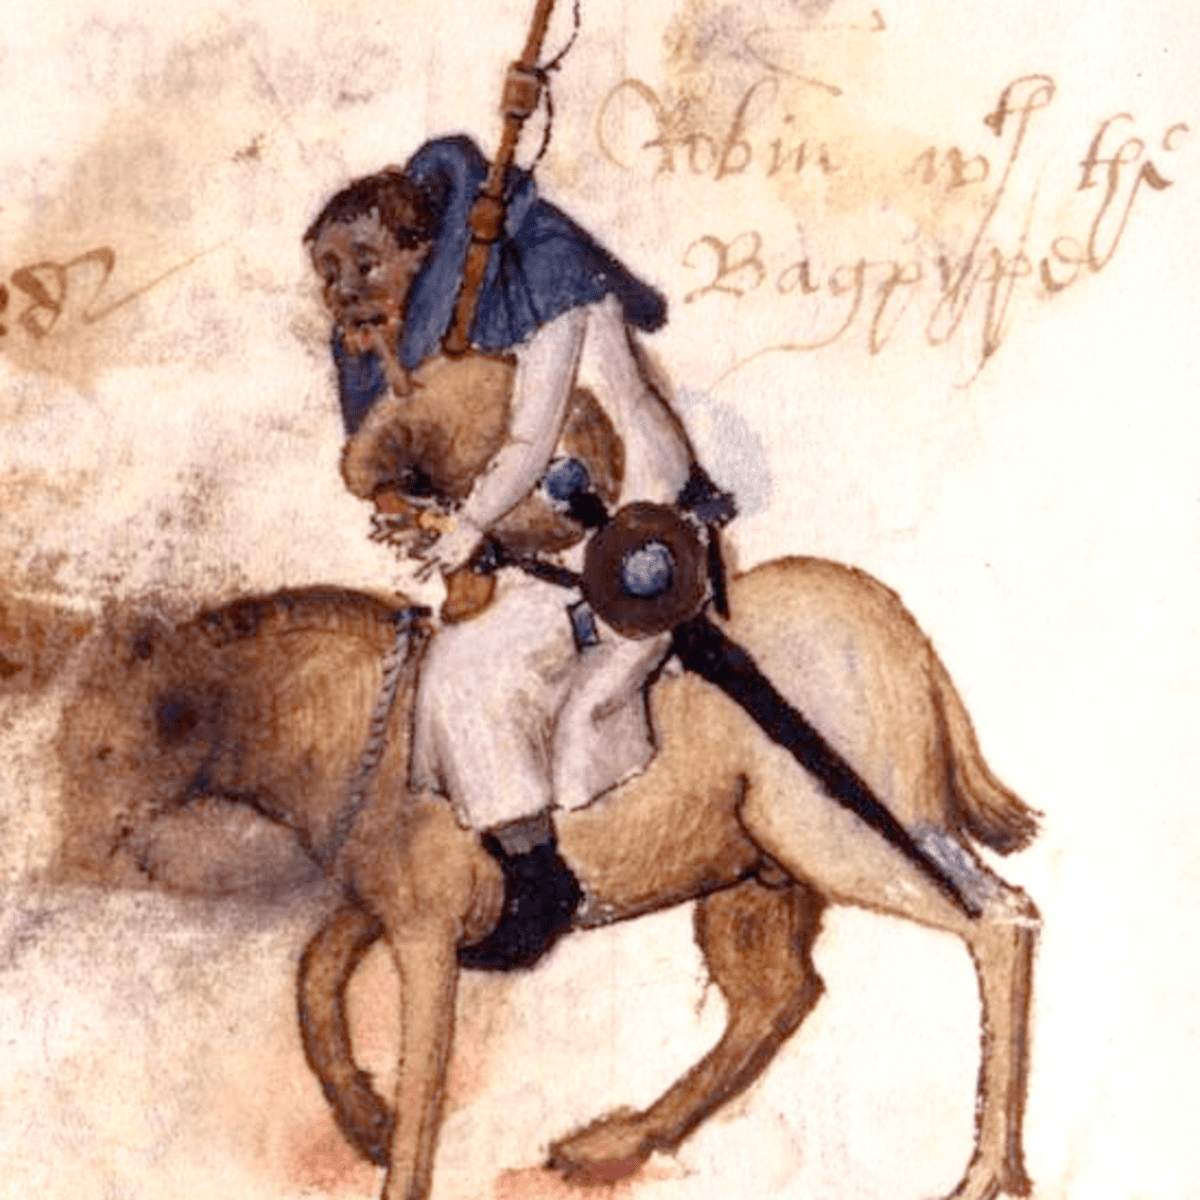 Robin wth the
Bagpype